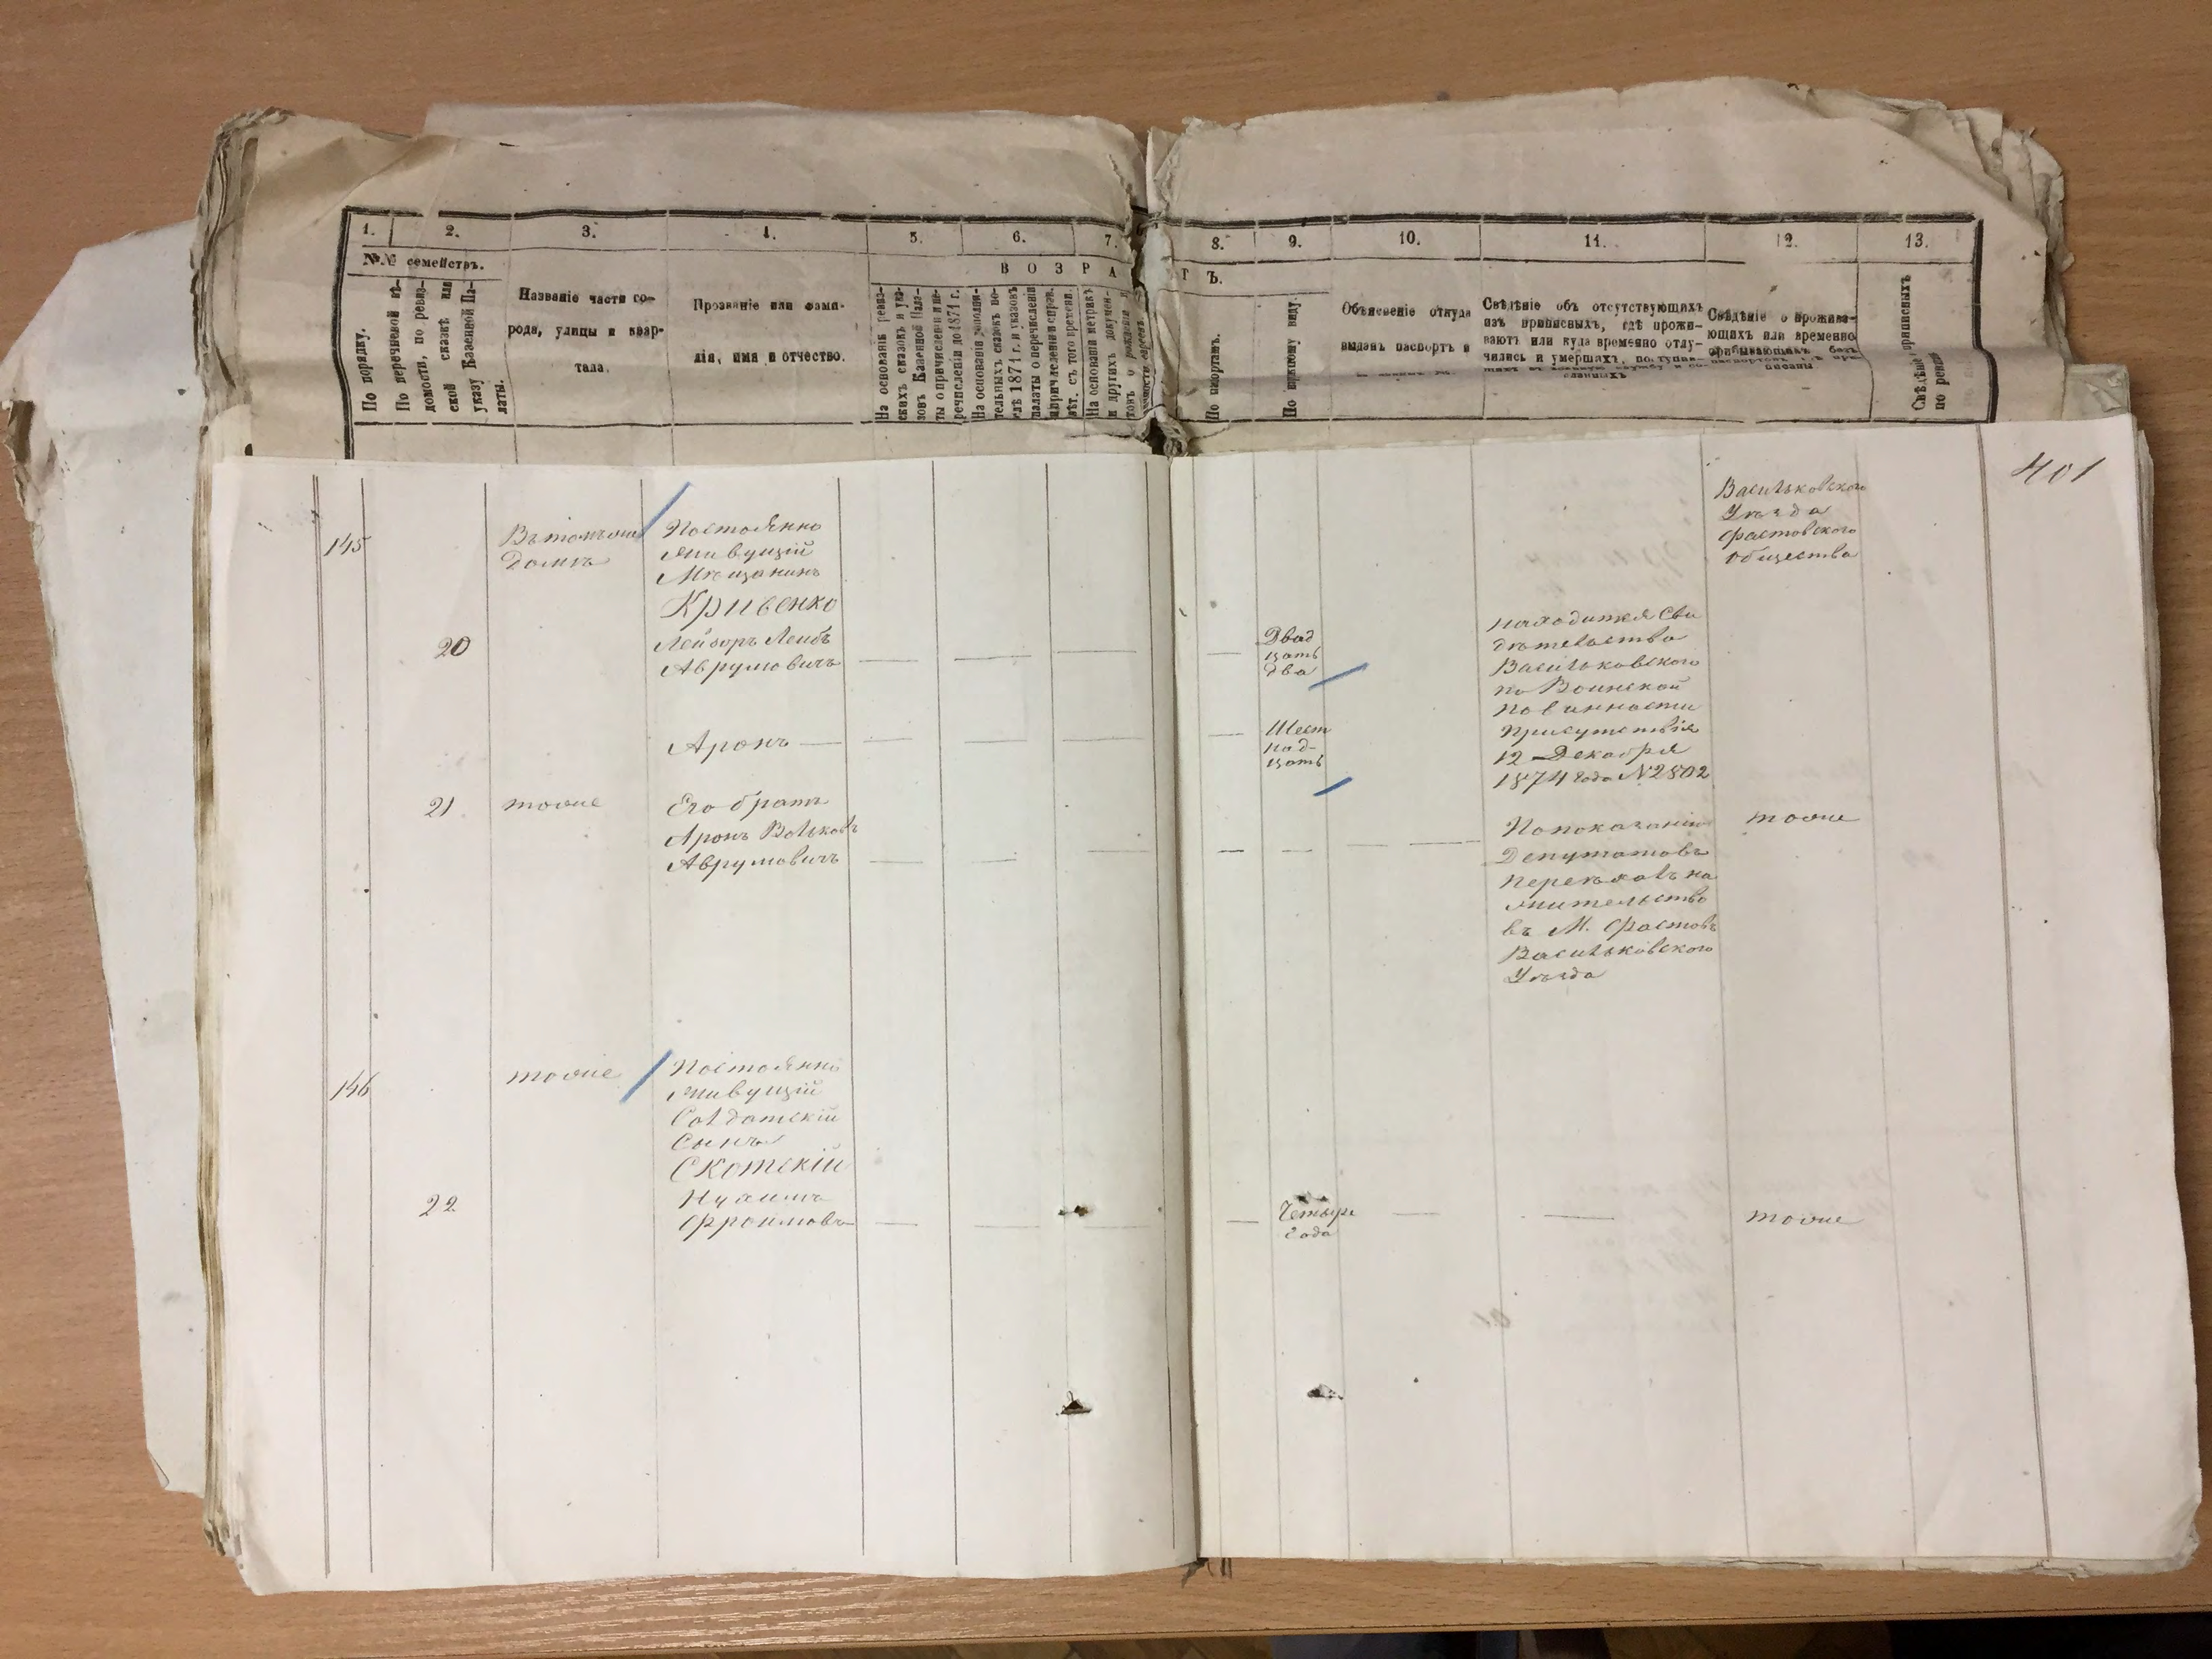 1.
2.
3.
4.
5.
6.
7.
8.
9.
10.
11.
12.
13.
№№ семействъ.
По порядку.
По перечневой вѣ-
домости, по ревиз-
ской сказкѣ или
указу Казенной Па-
латы.
Названіе части го-
рода, улицы и квар-
тала.
Прозваніе или фами-
лія, имя и отчество.
В О З Р А
Т Ъ.
На основаніи ревиз-
скихъ сказокъ и ука-
зовъ Казенной Пала-
ты о причисленіи и пе-
речисленіи до 1871 г.
На основаніи дополни-
тельныхъ сказокъ по-
слѣ 1871 г. и указовъ
палаты о перечисленіи
съ того времени.
На основаніи метрикъ
и другихъ докумен-
товъ о рожденіи и
евреевъ
По паспортамъ.
По виду.
Объясненіе откуда
выданъ паспортъ и
Свѣдѣніе объ отсутствующихъ
изъ приписныхъ, гдѣ прожи-
ваютъ или куда временно отлу-
чились и умершихъ, поступив-
шихъ въ военную службу и со-
сланныхъ
Свѣдѣніе о прожива-
ющихъ или временно
прибывающихъ безъ
паспортовъ
писаны
Свѣдѣніе приписныхъ
по ревиз
401
145
Въ томъ же
Домѣ
Постоянно
живущій
Мѣщанинъ
Кривенко
20
Лейзоръ Лейбъ
Аврумовичъ
Двад
цать
два
Васильковского
Уѣзда
Фастовского
Общества
Находится Сви
дѣтельства
Васильковского
по Воинской
повинности
Присутствія
12 Декабря
1874 года N2802
Аронъ
Шест
над-
цать
21
тоже
Его братъ
Аронъ Вольковъ
Аврумовичъ
По показанію
Депутатовъ
переѣхавъ на
жительство
въ М. Фастовъ
Васильковского
Уѣзда
тоже
146
тоже
Постоянно
живущій
Солдатскій
Сынъ
Скотскій
22
Нухимъ
Фроимовъ
Четыре
года
тоже